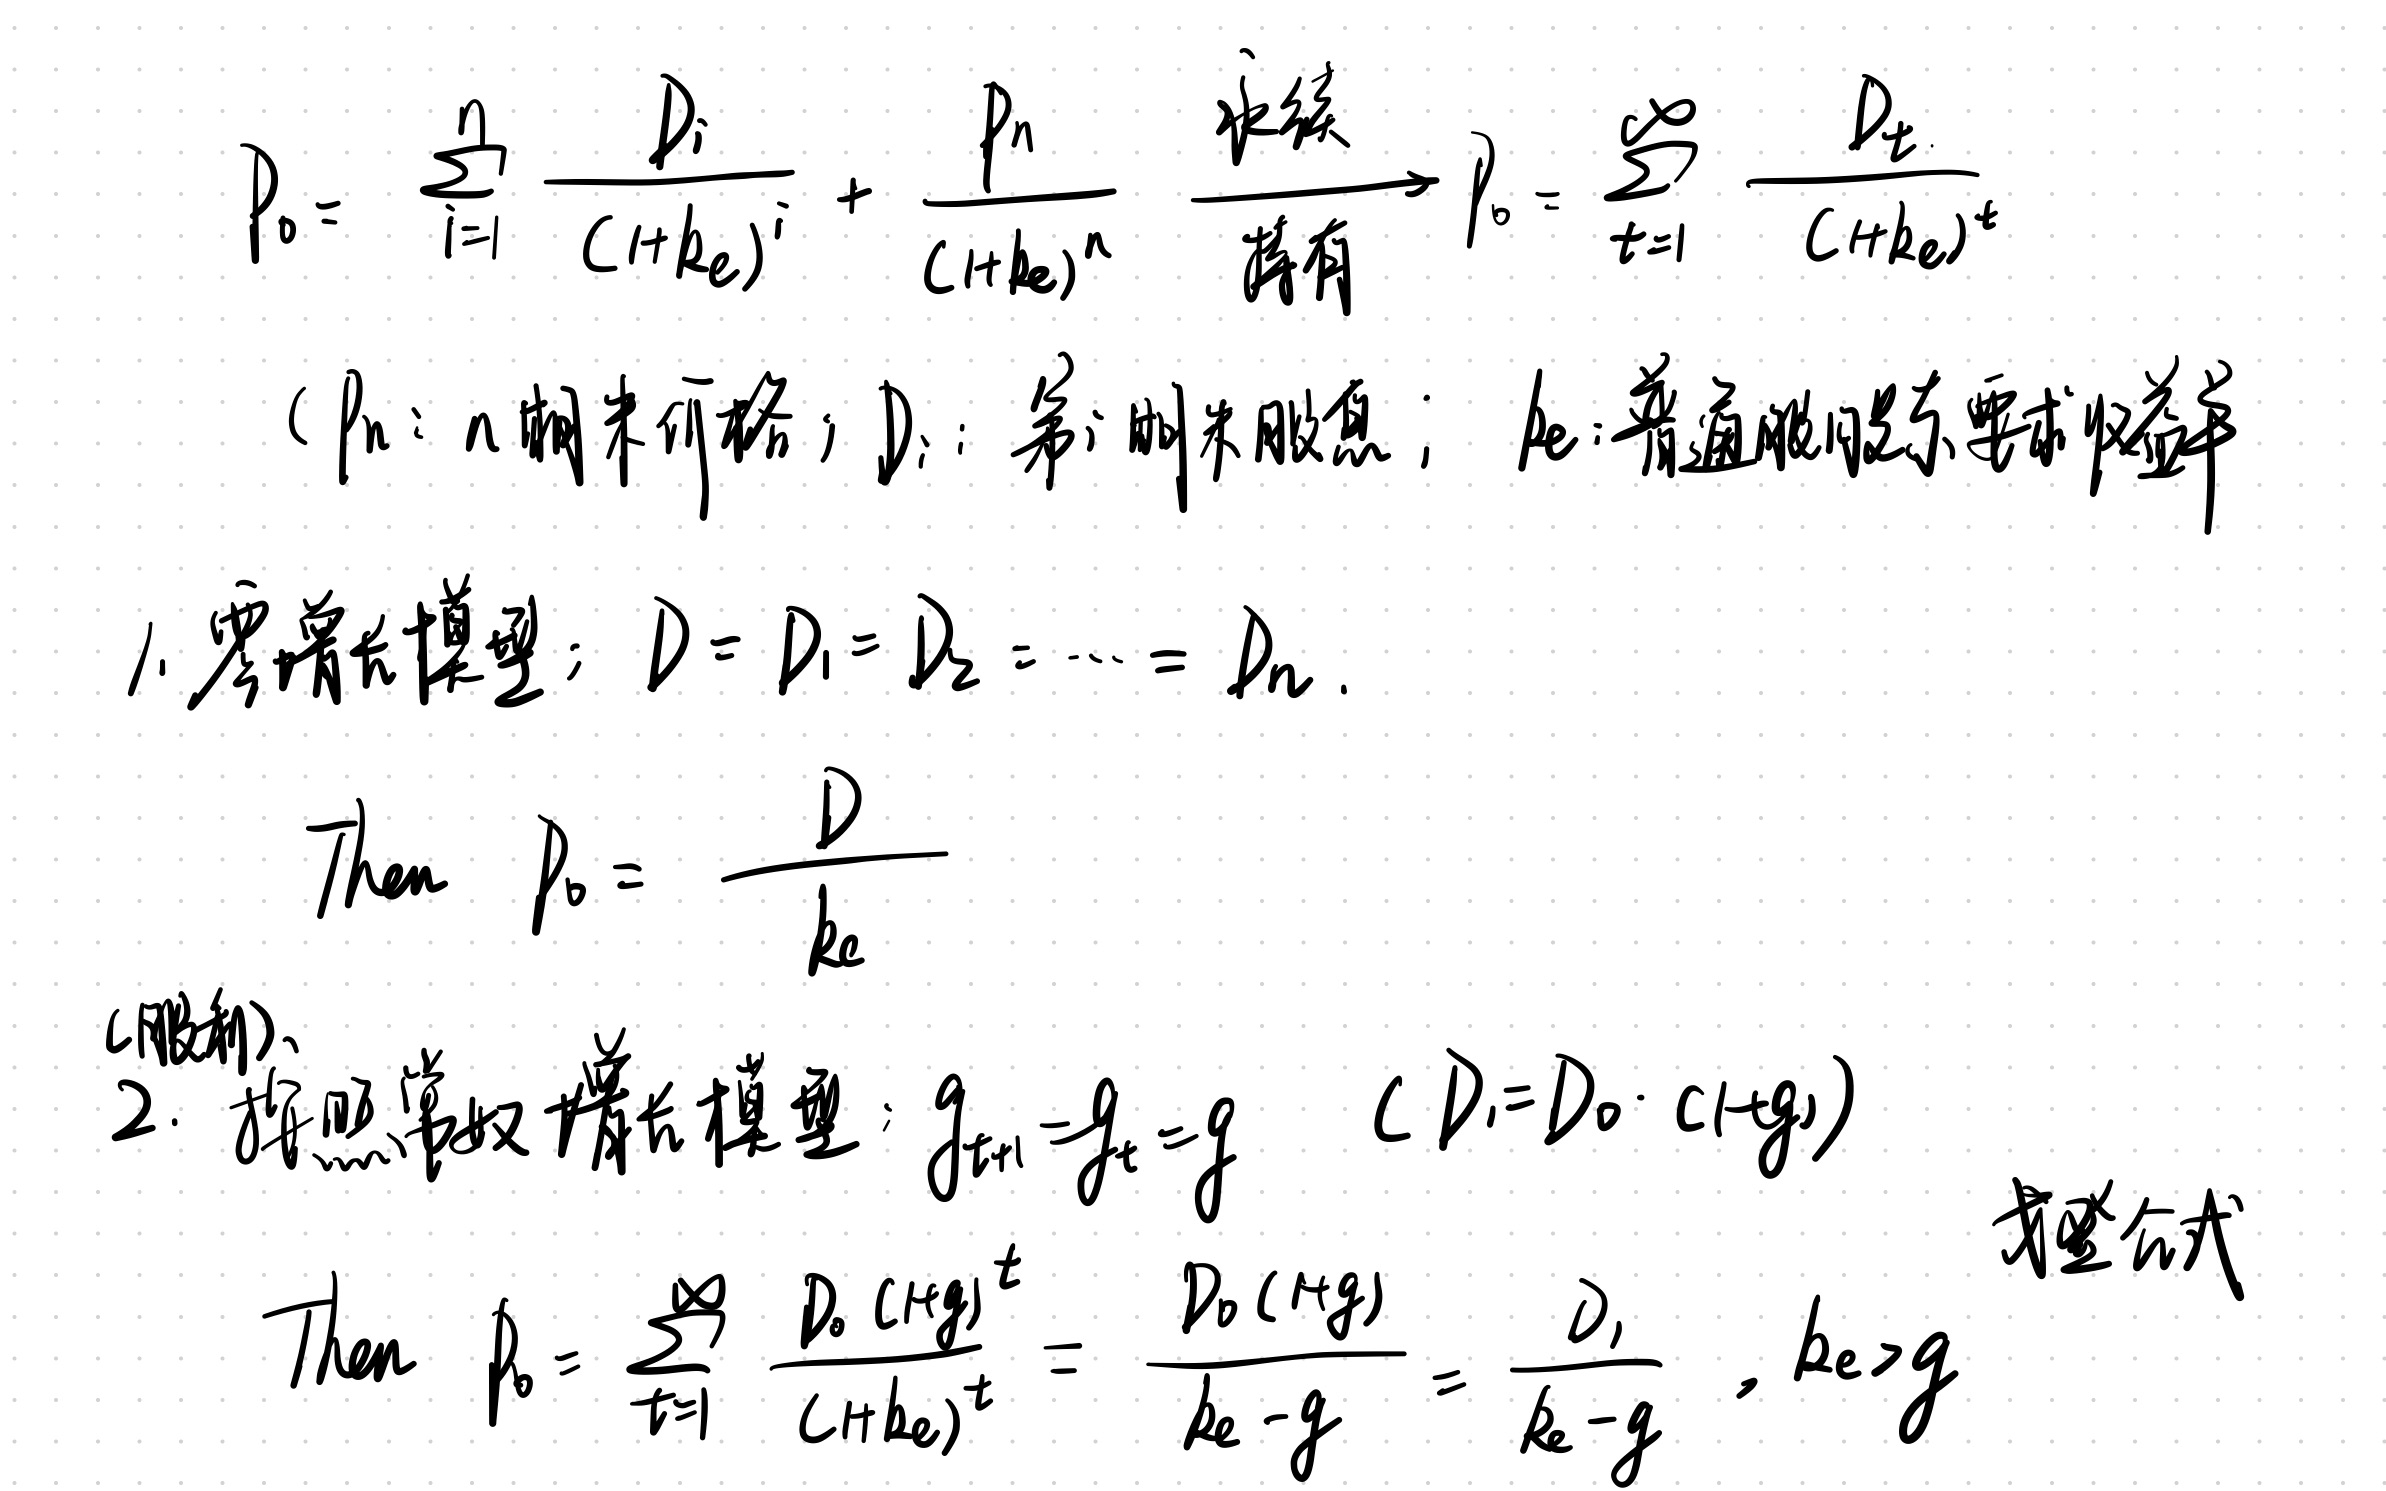 P₀ = Σ_{i=1}^{n} Dᵢ/(1+kₑ)ⁱ + Pₙ/(1+kₑ)ⁿ —永续/持有→ P₀ = Σ_{t=1}^{∞} D_t/(1+kₑ)^t
(Pₙ: n期末价格; Dᵢ: 第i期末股息; kₑ: 普通股股东要求收益率
1. 零增长模型: D = D₁ = D₂ = … = Dₙ.
Then P₀ = D/kₑ
(股利):
2. 按照算数增长模型: g_{t+1} = g_t = g (D₁ = D₀·(1+g))
模型公式
Then P₀ = Σ_{t=1}^{∞} D₀(1+g)^t/(1+kₑ)^t = D₀(1+g)/(kₑ-g) = D₁/(kₑ-g), kₑ>g